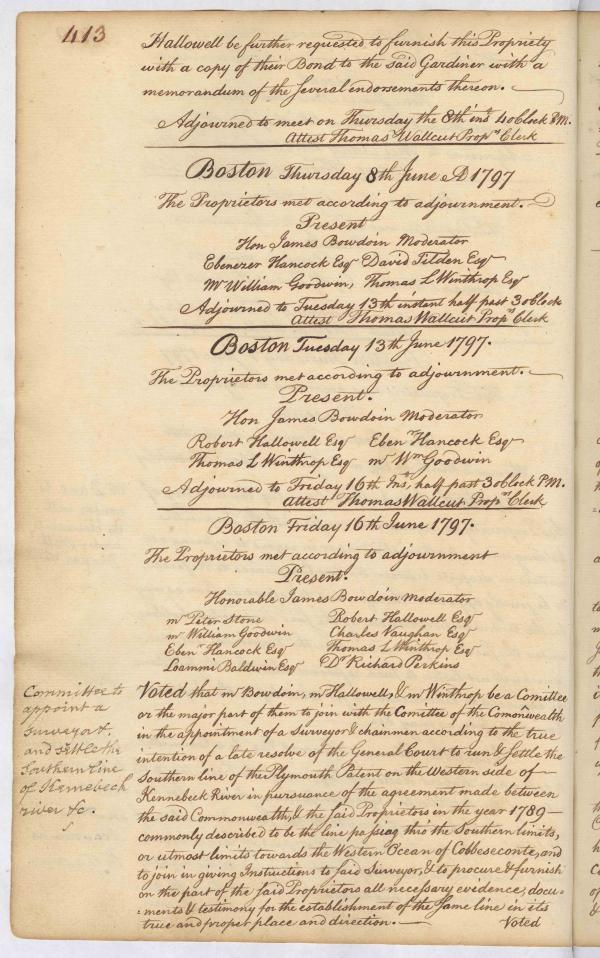 413
Hallowell be further requested to furnish this Propriety
with a copy of their Bond to the said Gardiner with a
memorandum of the several endorsements thereon.
Adjourned to meet on Thursday the 8th inst 4 oClock P.M.
Attest Thomas Wallcut Prop.rs Clerk
Boston Thursday 8th June AD 1797
The Proprietors met according to adjournment.
Present
Hon James Bowdoin Moderator
Ebenezer Hancock Esqr David Tilden Esqr
Mr William Goodwin, Thomas L Winthrop Esqr
Adjourned to Tuesday 13th instant half past 3 oClock
Attest Thomas Wallcut Prop.rs Clerk
Boston Tuesday 13th June 1797.
The Proprietors met according to adjournment.
Present.
Hon James Bowdoin Moderator
Robert Hallowell Esqr Eben.r Hancock Esqr
Thomas L Winthrop Esqr mr Wm Goodwin
Adjourned to Friday 16th Inst, half past 3 oClock P.M.
Attest Thomas Wallcut Prop.rs Clerk
Boston Friday 16th June 1797.
The Proprietors met according to adjournment
Present.
Honorable James Bowdoin moderator
mr Peter Stone Robert Hallowell Esqr
mr William Goodwin Charles Vaughan Esqr
Eben.r Hancock Esqr Thomas L Winthrop Esqr
Loammi Baldwin Esqr Dr Richard Perkins
Committee to
appoint a
Surveyor &c.
and settle the
Southern line
of Kennebeck
river &c.
Voted that mr Bowdoin, mr Hallowell, & mr Winthrop be a Comittee
or the major part of them to join with the Comittee of the Comonwealth
in the appointment of a Surveyor & chainmen according to the true
intention of a late resolve of the General Court to run & settle the
Southern line of the Plymouth Patent on the Western side of
Kennebeck River in pursuance of the agreement made between
the said Commonwealth, & the said Proprietors in the year 1789—
commonly described to be the line passing thro the Southern limits,
or utmost limits towards the Western Ocean of Cobbeseconte, and
to join in giving Instructions to said Surveyor, & to procure & furnish
on the part of the said Proprietors all necessary evidence, docu-
ments & testimony for the establishment of the same line in its
true and proper place and direction.— Voted